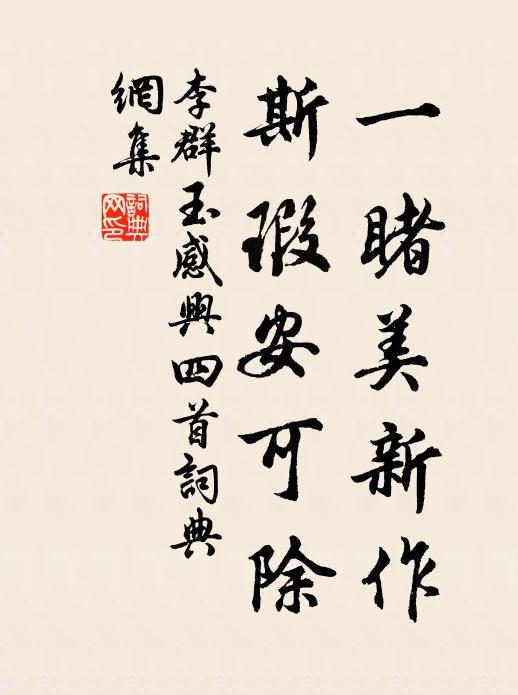 一睹美新作
斯瑕安可除
李群玉感興四首詞典
網集
詞典
网印